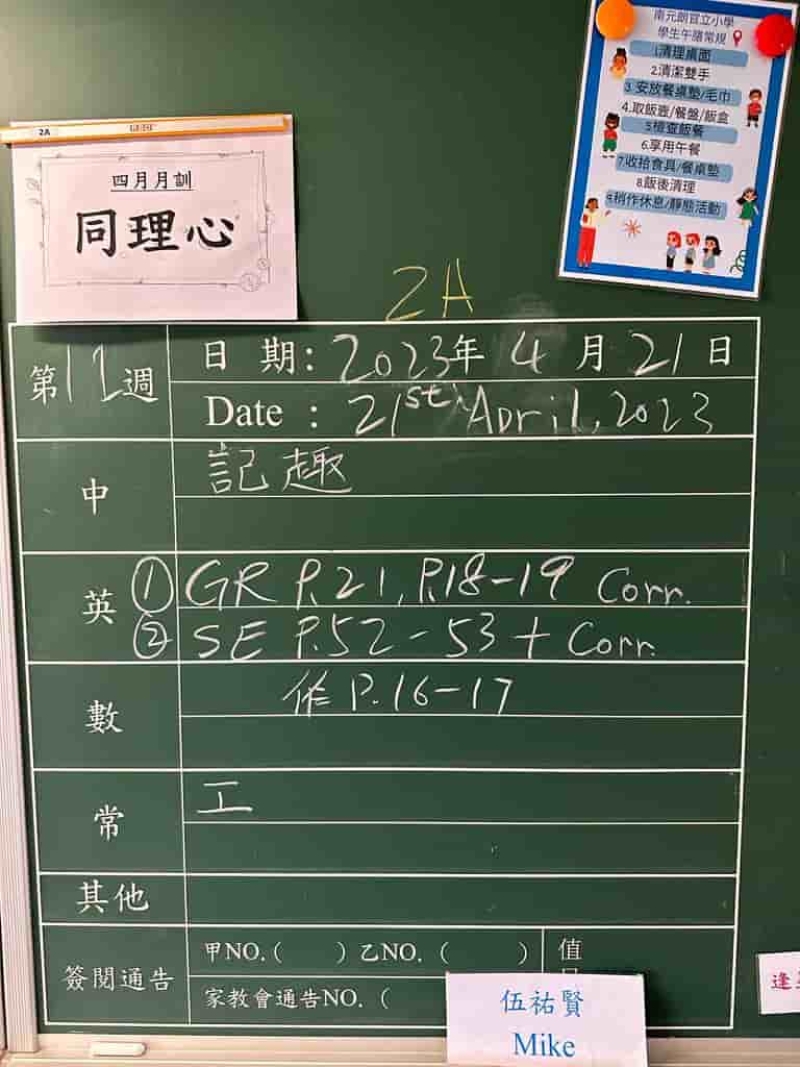 南元朗官立小學
學生午膳常規
1.清理桌面
2.清潔雙手
3.安放餐桌墊/毛巾
4.取飯壺/餐盤/飯盒
5.檢查飯餐
6.享用午餐
7.收拾食具/餐桌墊
8.飯後清理
9.稍作休息/靜態活動
2A
四月月訓
同理心
2A
第12週
日 期: 2023年 4 月 21 日
Date : 21st April, 2023
中 記趣
英 ① GR P.21, P.18-19 Corr.
② SE P.52-53 + Corr.
數 作 P.16-17
常 工
其他
簽閱通告
甲NO.( ) 乙NO. ( ) 值
家教會通告NO. (
伍祐賢
Mike
逢